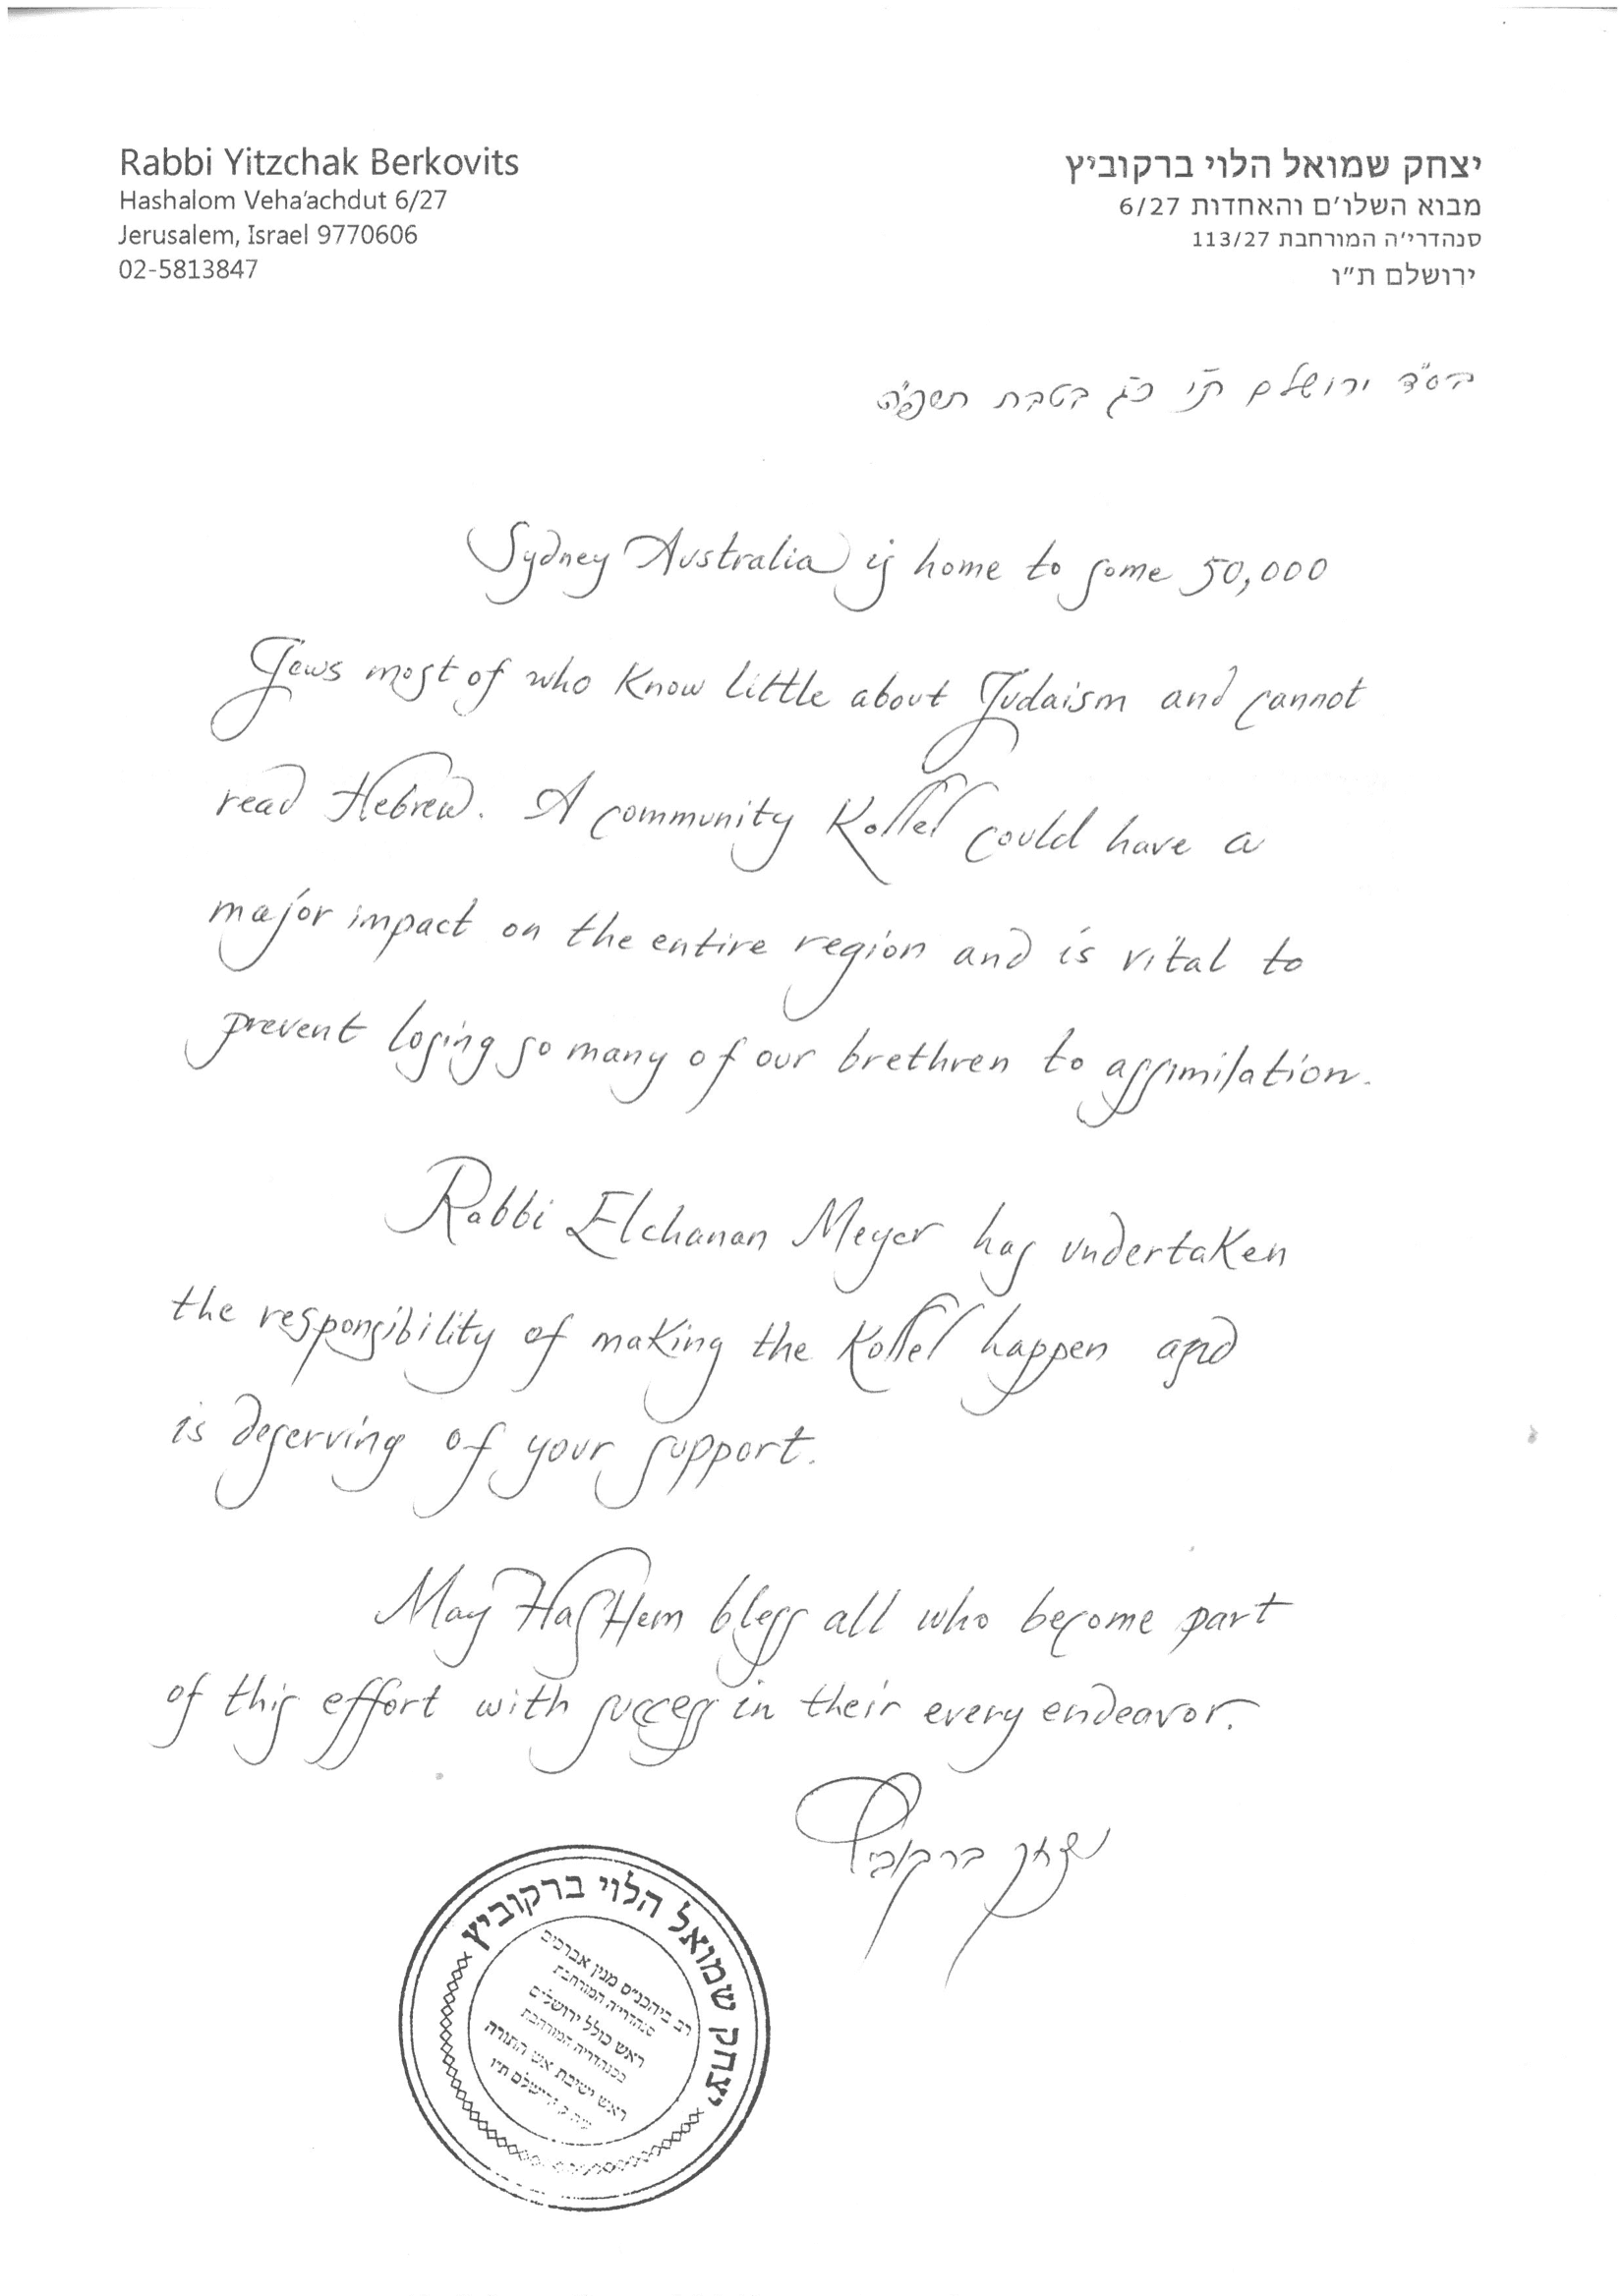 Rabbi Yitzchak Berkovits
Hashalom Veha'achdut 6/27
Jerusalem, Israel 9770606
02-5813847
יצחק שמואל הלוי ברקוביץ
מבוא השלו'ם והאחדות 6/27
סנהדרי'ה המורחבת 113/27
ירושלם ת"ו
בס"ד ירושלם ת"ו כ"ג בטבת תשפ"ה
Sydney Australia is home to some 50,000
Jews most of who know little about Judaism and cannot
read Hebrew. A community Kollel could have a
major impact on the entire region and is vital to
prevent losing so many of our brethren to assimilation.
Rabbi Elchanan Meyer has undertaken
the responsibility of making the Kollel happen and
is deserving of your support.
May HasHem bless all who become part
of this effort with success in their every endeavor.
יצחק ברקוביץ
יצחק שמואל הלוי ברקוביץ
רב ביהכנ"ס מנין אברכים
סנהדריה המורחבת
ראש כולל ירושלים
בסנהדריה המורחבת
ראש ישיבת אש התורה
ירושלם ת"ו